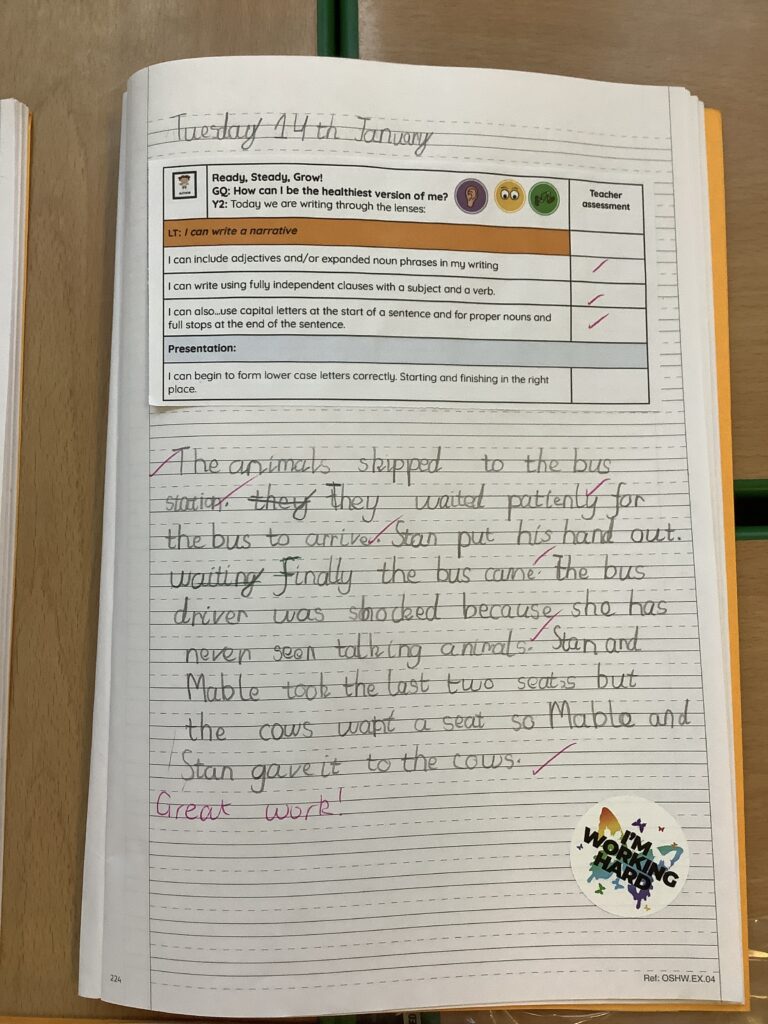 Tuesday 14th January
Ready, Steady, Grow!
GQ: How can I be the healthiest version of me?
Y2: Today we are writing through the lenses:
Teacher assessment
LT: I can write a narrative
I can include adjectives and/or expanded noun phrases in my writing
I can write using fully independent clauses with a subject and a verb.
I can also...use capital letters at the start of a sentence and for proper nouns and
full stops at the end of the sentence.
Presentation:
I can begin to form lower case letters correctly. Starting and finishing in the right
place.
The animals skipped to the bus
station. they They waited pattenly for
the bus to arrive. Stan put his hand out.
waiting Finally the bus came. The bus
driver was shocked because she has
never seen talking animals. Stan and
Mable took the last two seats but
the cows want a seat so Mable and
Stan gave it to the cows.
Great work!
I'M
WORKING
HARD
224
Ref: OSHW.EX.04